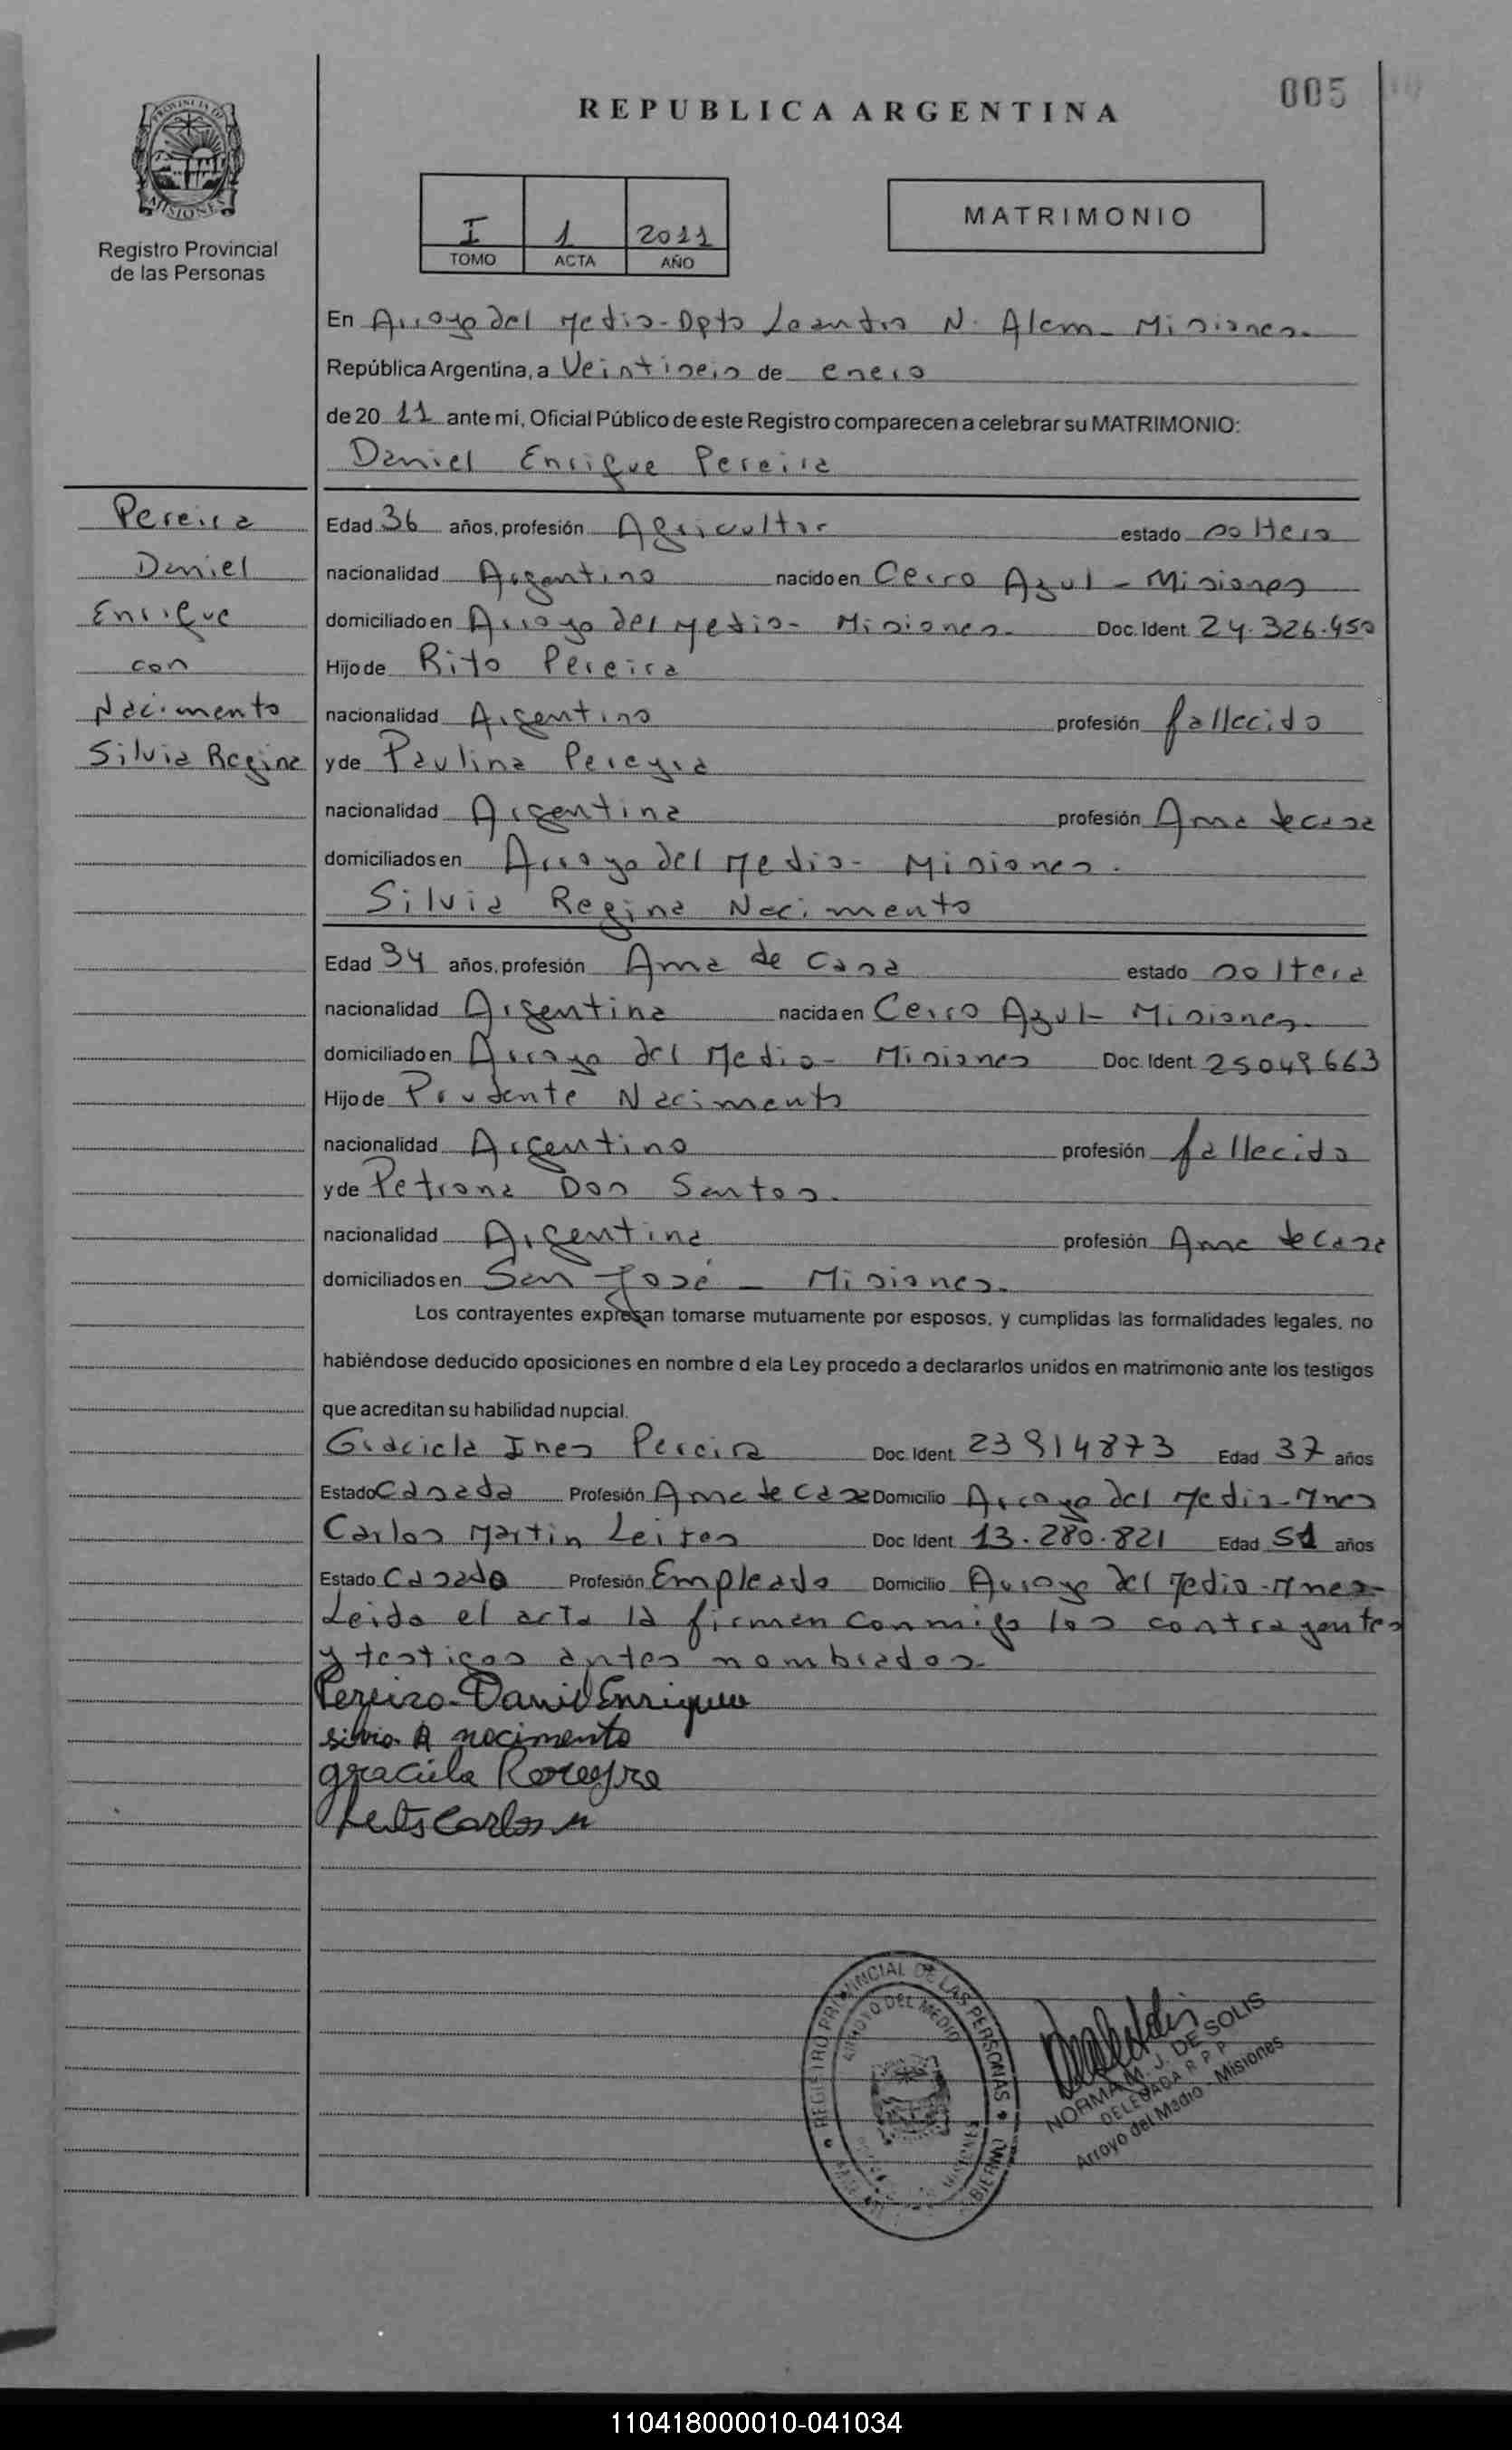 005
REPUBLICA ARGENTINA
PROVINCIA DE
MISIONES
Registro Provincial
de las Personas
I 1 2011
TOMO ACTA AÑO
MATRIMONIO
En Arroyo del Medio - Dpto Leandro N. Alem - Misiones.
República Argentina, a Veintiseis de enero
de 20 11 ante mi, Oficial Público de este Registro comparecen a celebrar su MATRIMONIO:
Daniel Enrique Pereira
Pereira
Daniel
Enrique
con
Nacimento
Silvia Regina
Edad 36 años, profesión Agricultor estado soltero
nacionalidad Argentino nacido en Cerro Azul - Misiones
domiciliado en Arroyo del Medio - Misiones. Doc. Ident. 24.326.450
Hijo de Rito Pereira
nacionalidad Argentino profesión fallecido
y de Paulina Pereyra
nacionalidad Argentina profesión Ama de casa
domiciliados en Arroyo del Medio - Misiones.
Silvia Regina Nacimento
Edad 34 años, profesión Ama de Casa estado soltera
nacionalidad Argentina nacida en Cerro Azul - Misiones.
domiciliado en Arroyo del Medio - Misiones Doc. Ident. 25049663
Hijo de Prudente Nacimento
nacionalidad Argentino profesión fallecido
y de Petrona Dos Santos.
nacionalidad Argentina profesión Ama de casa
domiciliados en San José - Misiones.
Los contrayentes expresan tomarse mutuamente por esposos, y cumplidas las formalidades legales, no
habiéndose deducido oposiciones en nombre d ela Ley procedo a declararlos unidos en matrimonio ante los testigos
que acreditan su habilidad nupcial.
Graciela Ines Pereira Doc. Ident. 23914873 Edad 37 años
Estado Casada Profesión Ama de casa Domicilio Arroyo del Medio - Mnes
Carlos Martin Leites Doc. Ident. 13.280.821 Edad 51 años
Estado Casado Profesión Empleado Domicilio Arroyo del Medio - Mnes -
Leida el acta la firman conmigo los contrayentes
y testigos antes nombrados.
Pereira Daniel Enrique
Silvia R nacimento
graciela Pereyra
Leites Carlos M
REGISTRO PROVINCIAL DE LAS PERSONAS
ARROYO DEL MEDIO
MISIONES
NORMA M. J. DE SOLIS
DELEGADA R P P
Arroyo del Medio - Misiones
110418000010-041034